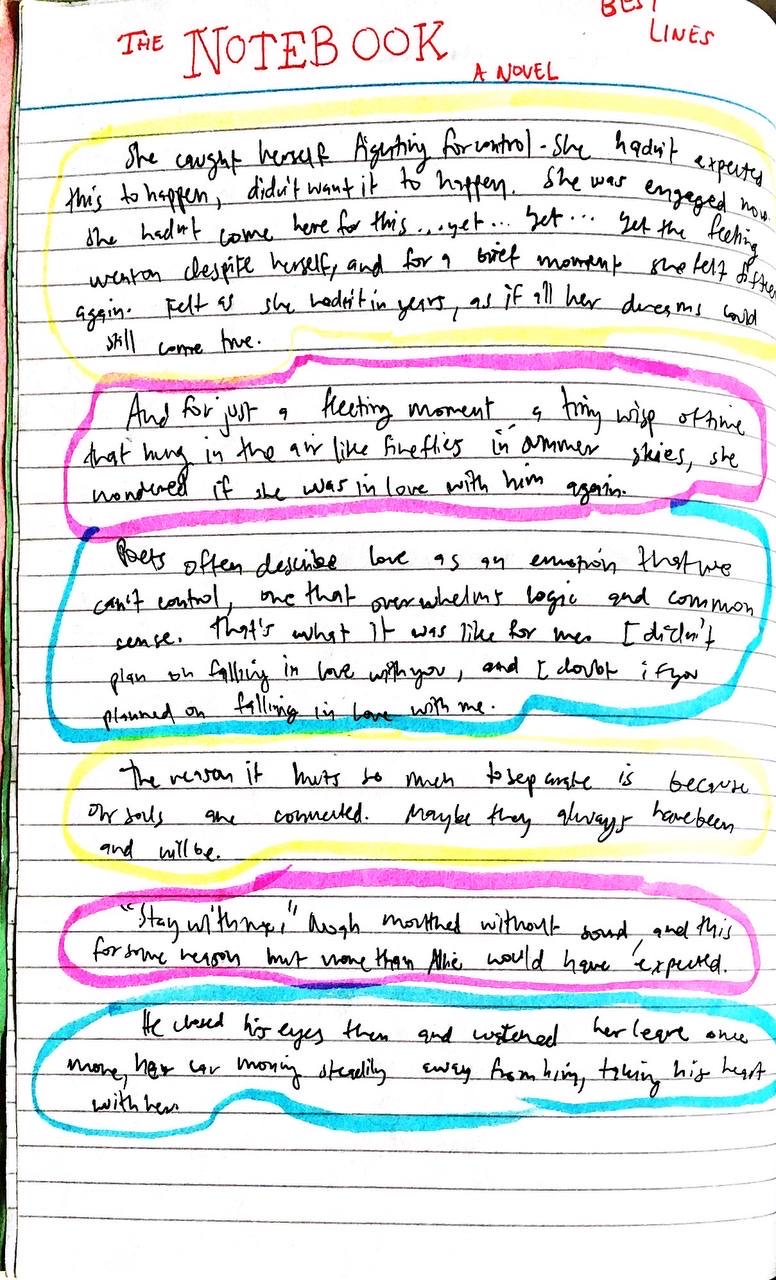 BEST
LINES
THE NOTEBOOK
A NOVEL
She caught herself fighting for control. She hadn't expected
this to happen, didn't want it to happen. She was engaged now.
She hadn't come here for this ... yet ... yet ... yet the feeling
went on despite herself, and for a brief moment she felt fifteen
again. Felt as she hadn't in years, as if all her dreams could
still come true.
And for just a fleeting moment a tiny wisp of time
that hung in the air like fireflies in summer skies, she
wondered if she was in love with him again.
Poets often describe love as an emotion that we
can't control, one that overwhelms logic and common
sense. That's what it was like for me. I didn't
plan on falling in love with you, and I doubt if you
planned on falling in love with me.
The reason it hurts so much to separate is because
our souls are connected. Maybe they always have been
and will be.
"Stay with me," Noah mouthed without sound, and this
for some reason hurt more than Allie would have expected.
He closed his eyes then and listened her leave once
more, her car moving steadily away from him, taking his heart
with her.